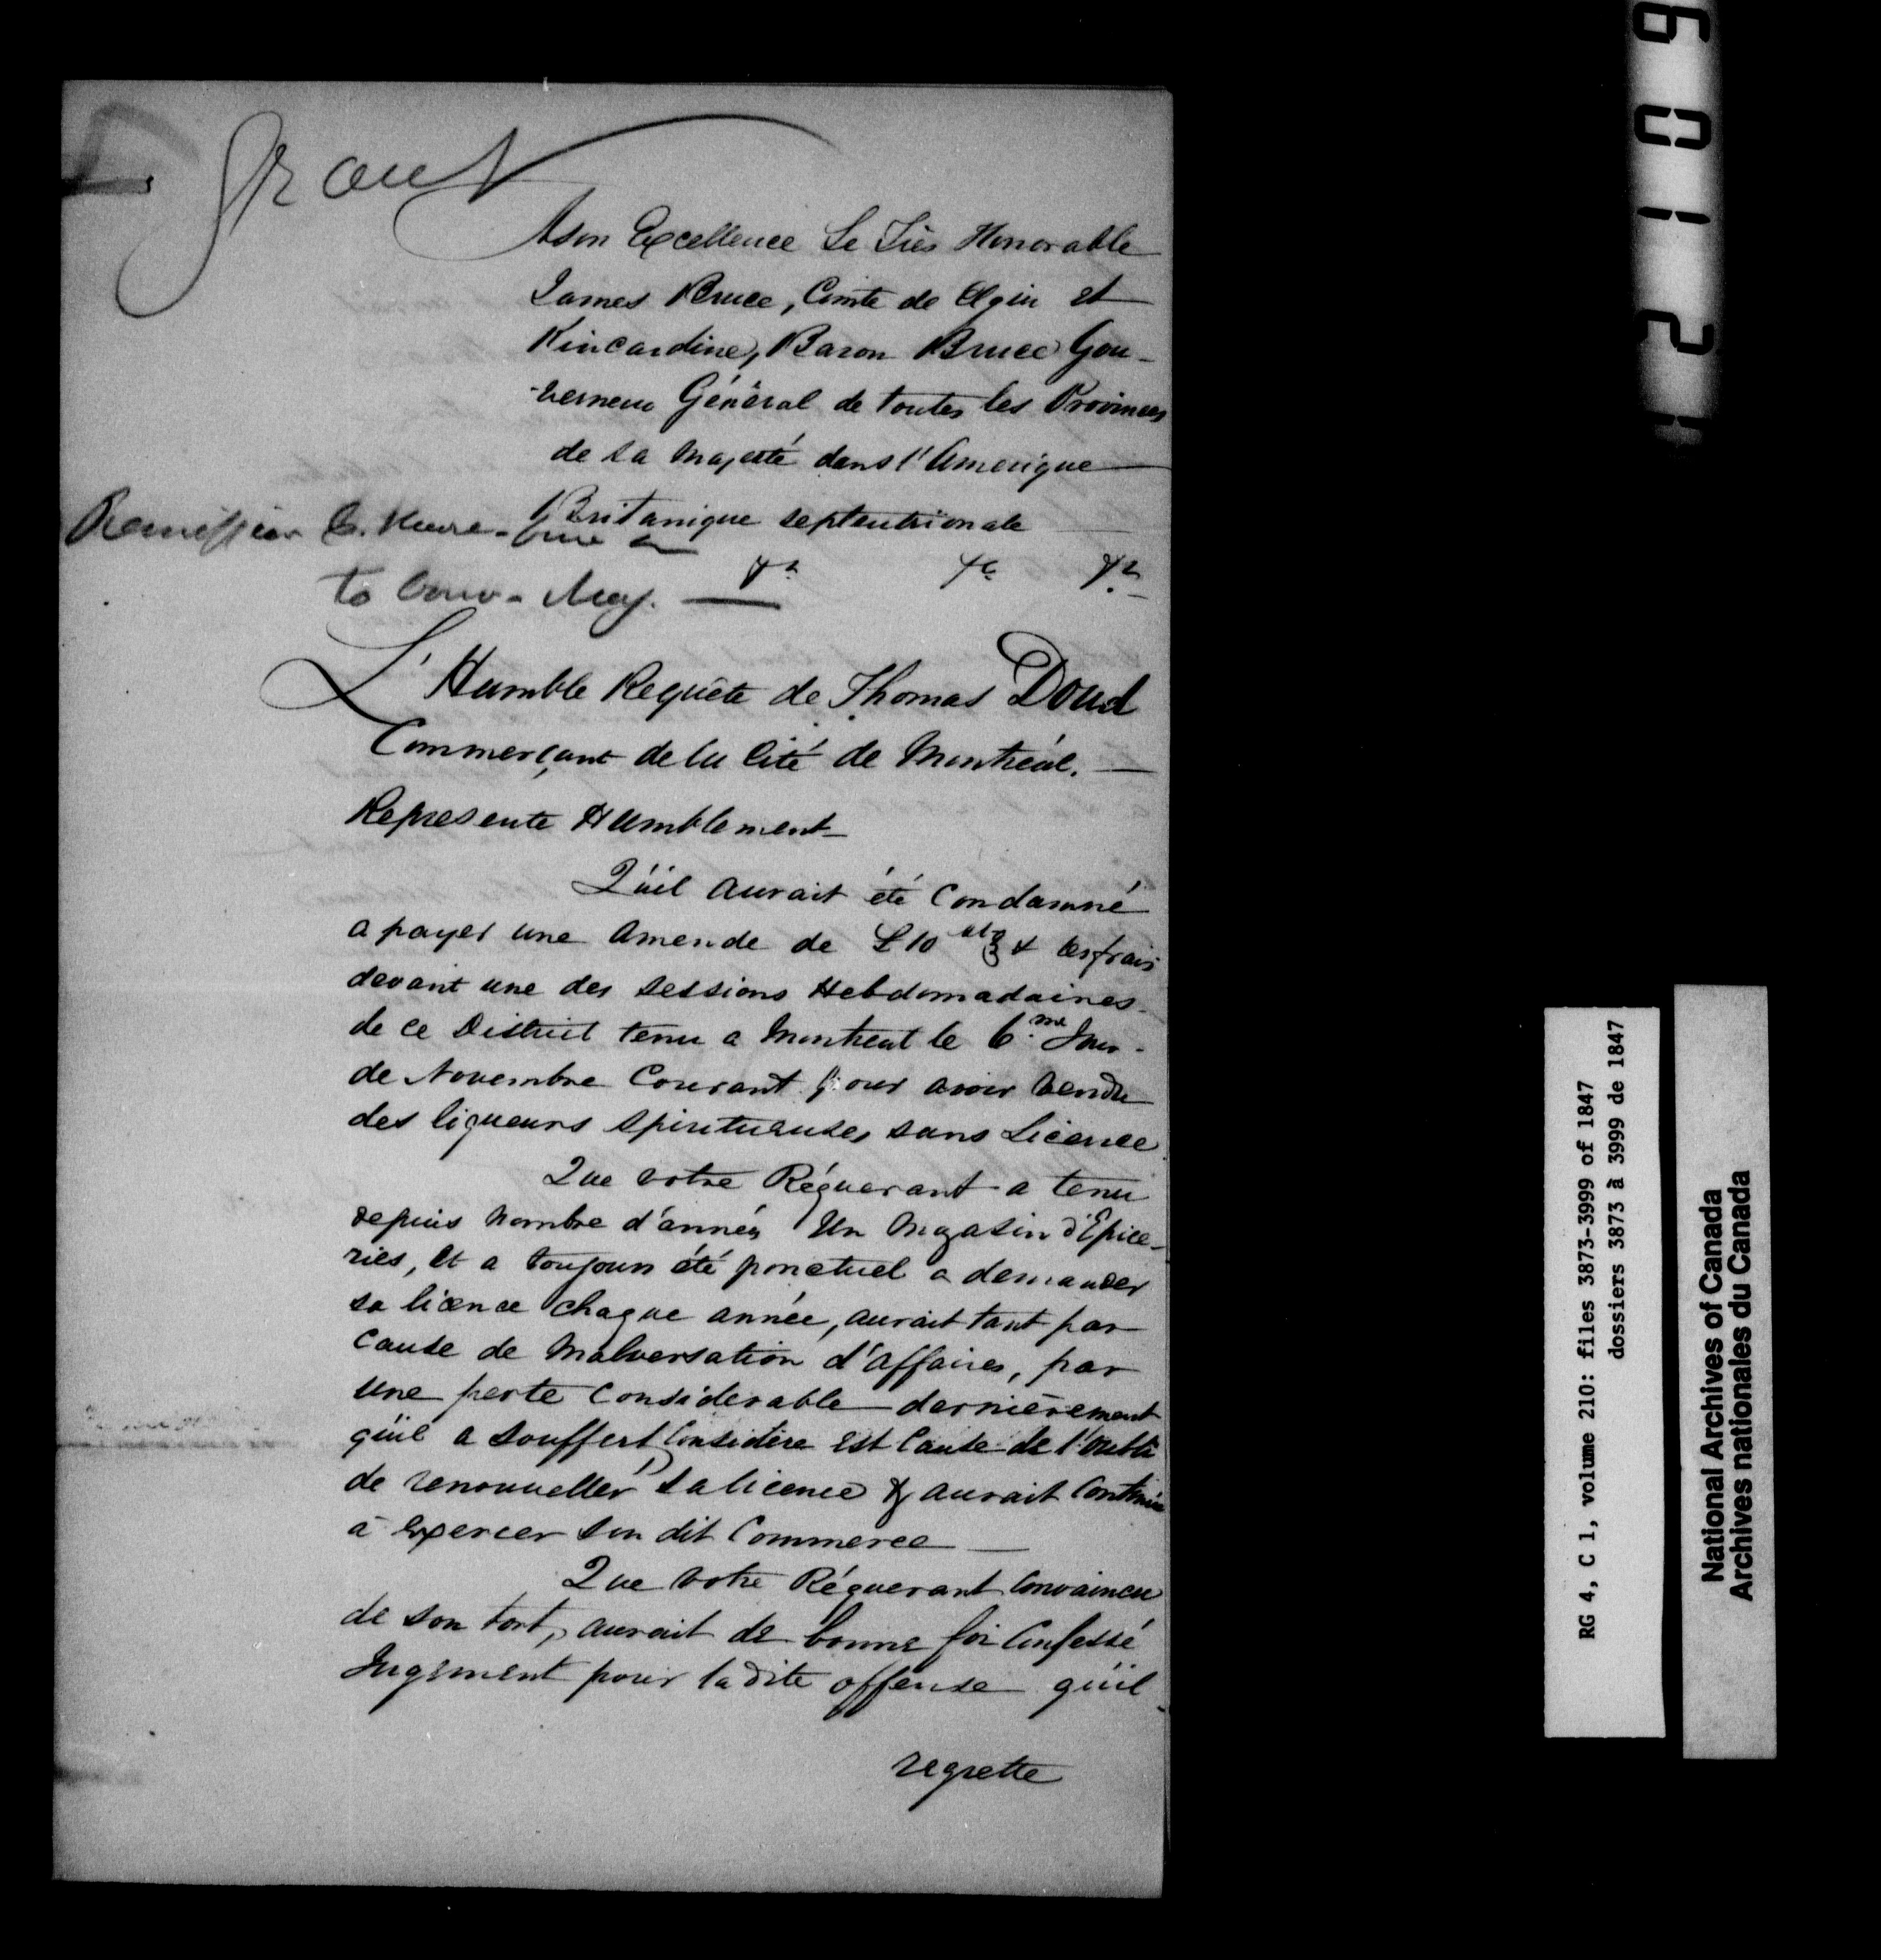 Grant
A son Excellence Le Très Honorable
James Bruce, Comte de Elgin et
Kincardine, Baron Bruce Gou-
-verneur Général de toutes les Provinces
de sa Majesté dans l'Amerique
Britanique septentrionale
Remission
fine
to
&c &c &c
L'Humble Requête de Thomas Doud
Commerçant de la Cité de Montréal.
Represente Humblement
Qu'il aurait été Condamné
a payer une Amende de £10 & les frais
devant une des sessions Hebdomadaires
de ce District tenu a Montreal le 6.me Jour
de Novembre Courant pour avoir vendu
des liqueurs spiritueuses sans Licence
Que votre Réquerant a tenu
depuis nombre d'années Un Magasin d'Epice-
ries, et a toujours été ponctuel a demander
sa licence chaque année, aurait tant par
cause de Malversation d'affaires, par
une perte Considerable dernièrement
qu'il a souffert Considère est Cause de l'oubli
de renouveller sa licence & aurait Continué
à Exercer son dit Commerce
Que votre Réquerant Convaincu
de son tort, aurait de bonne foi Confessé
Jugement pour la dite offense qu'il
regrette
RG 4, C 1, volume 210: files 3873-3999 of 1847
dossiers 3873 à 3999 de 1847
National Archives of Canada
Archives nationales du Canada